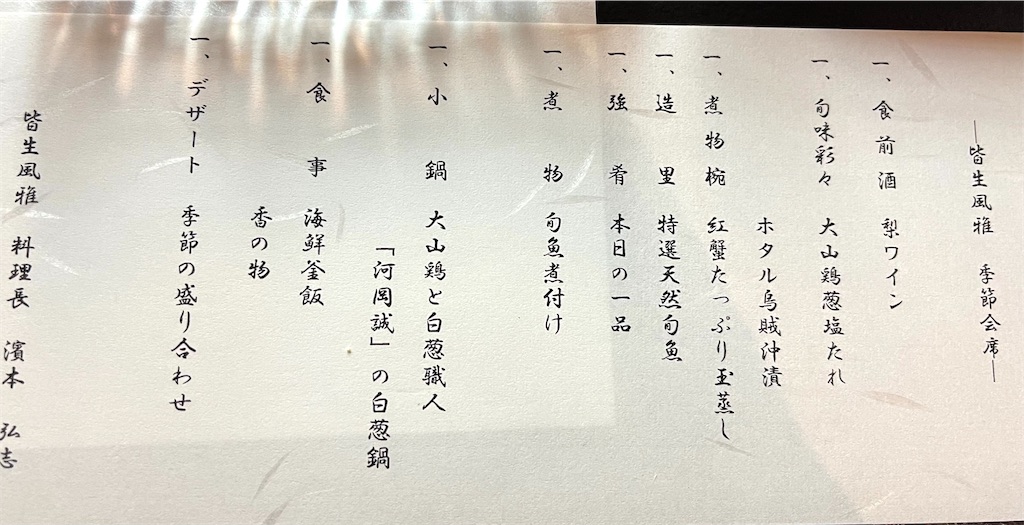 ―皆生風雅　季節会席―
一、食前酒　梨ワイン
一、旬味彩々　大山鶏葱塩たれ
ホタル烏賊沖漬
一、煮物椀　紅蟹たっぷり玉蒸し
一、造里　特選天然旬魚
一、強肴　本日の一品
一、煮物　旬魚煮付け
一、小鍋　大山鶏と白葱職人
「河岡誠」の白葱鍋
一、食事　海鮮釜飯
香の物
一、デザート　季節の盛り合わせ
皆生風雅　料理長　濱本　弘志